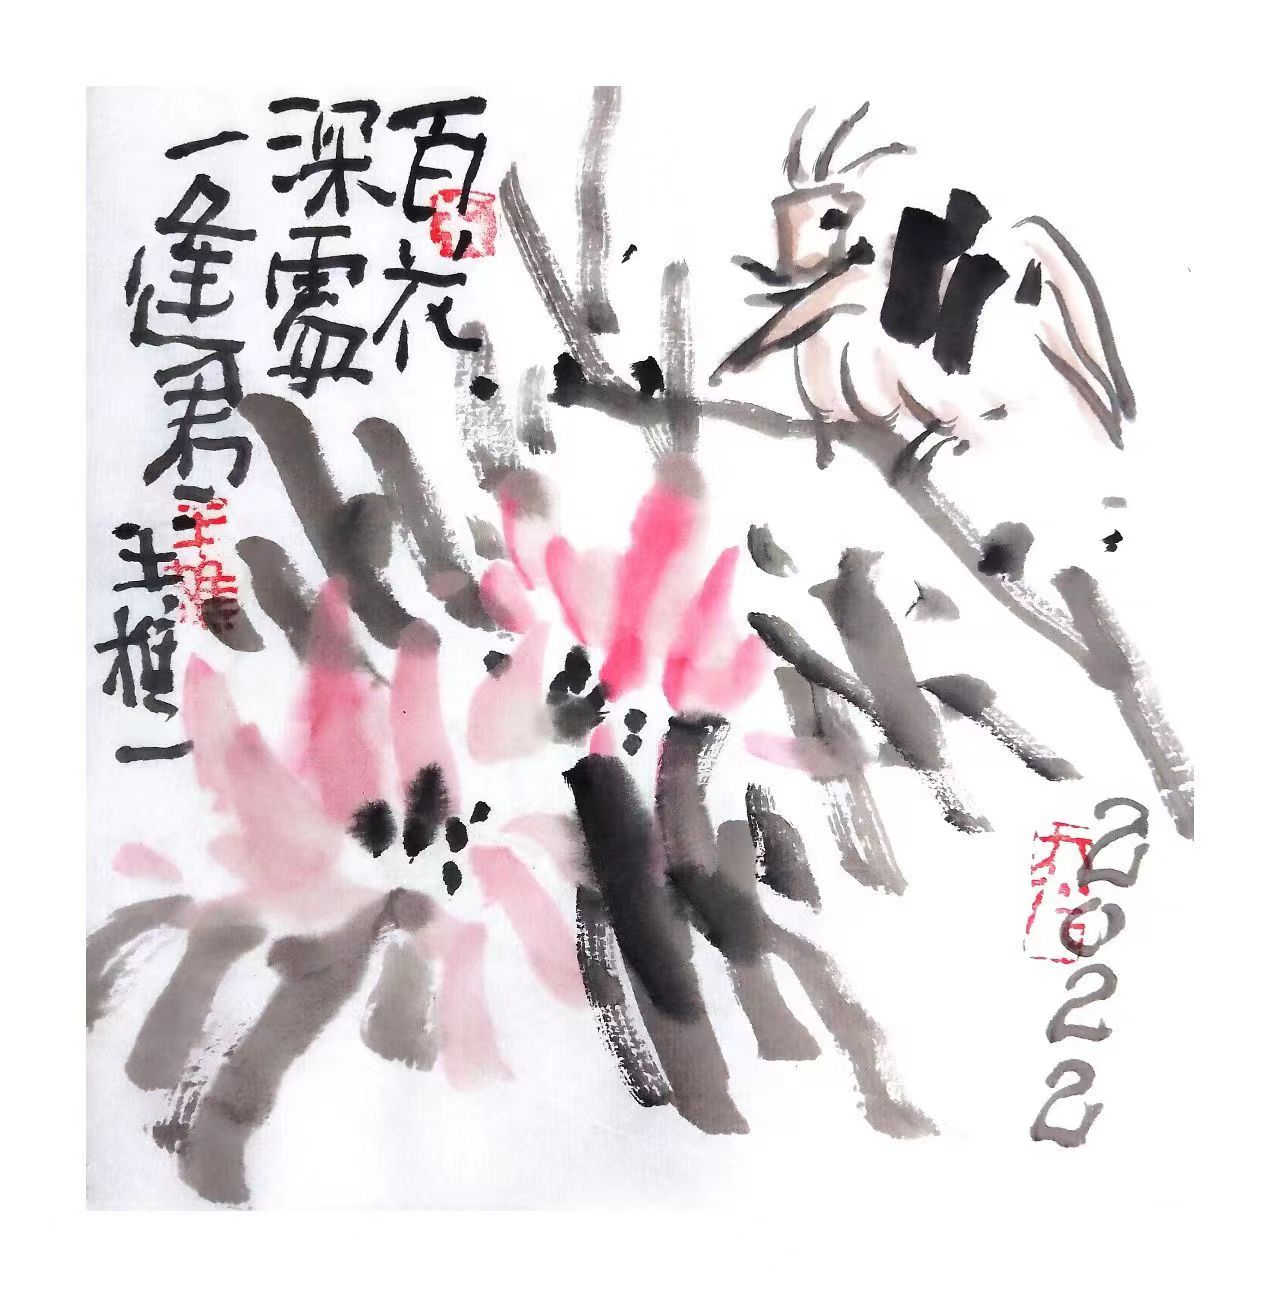 百花
深處
一逢君
王
一
2022